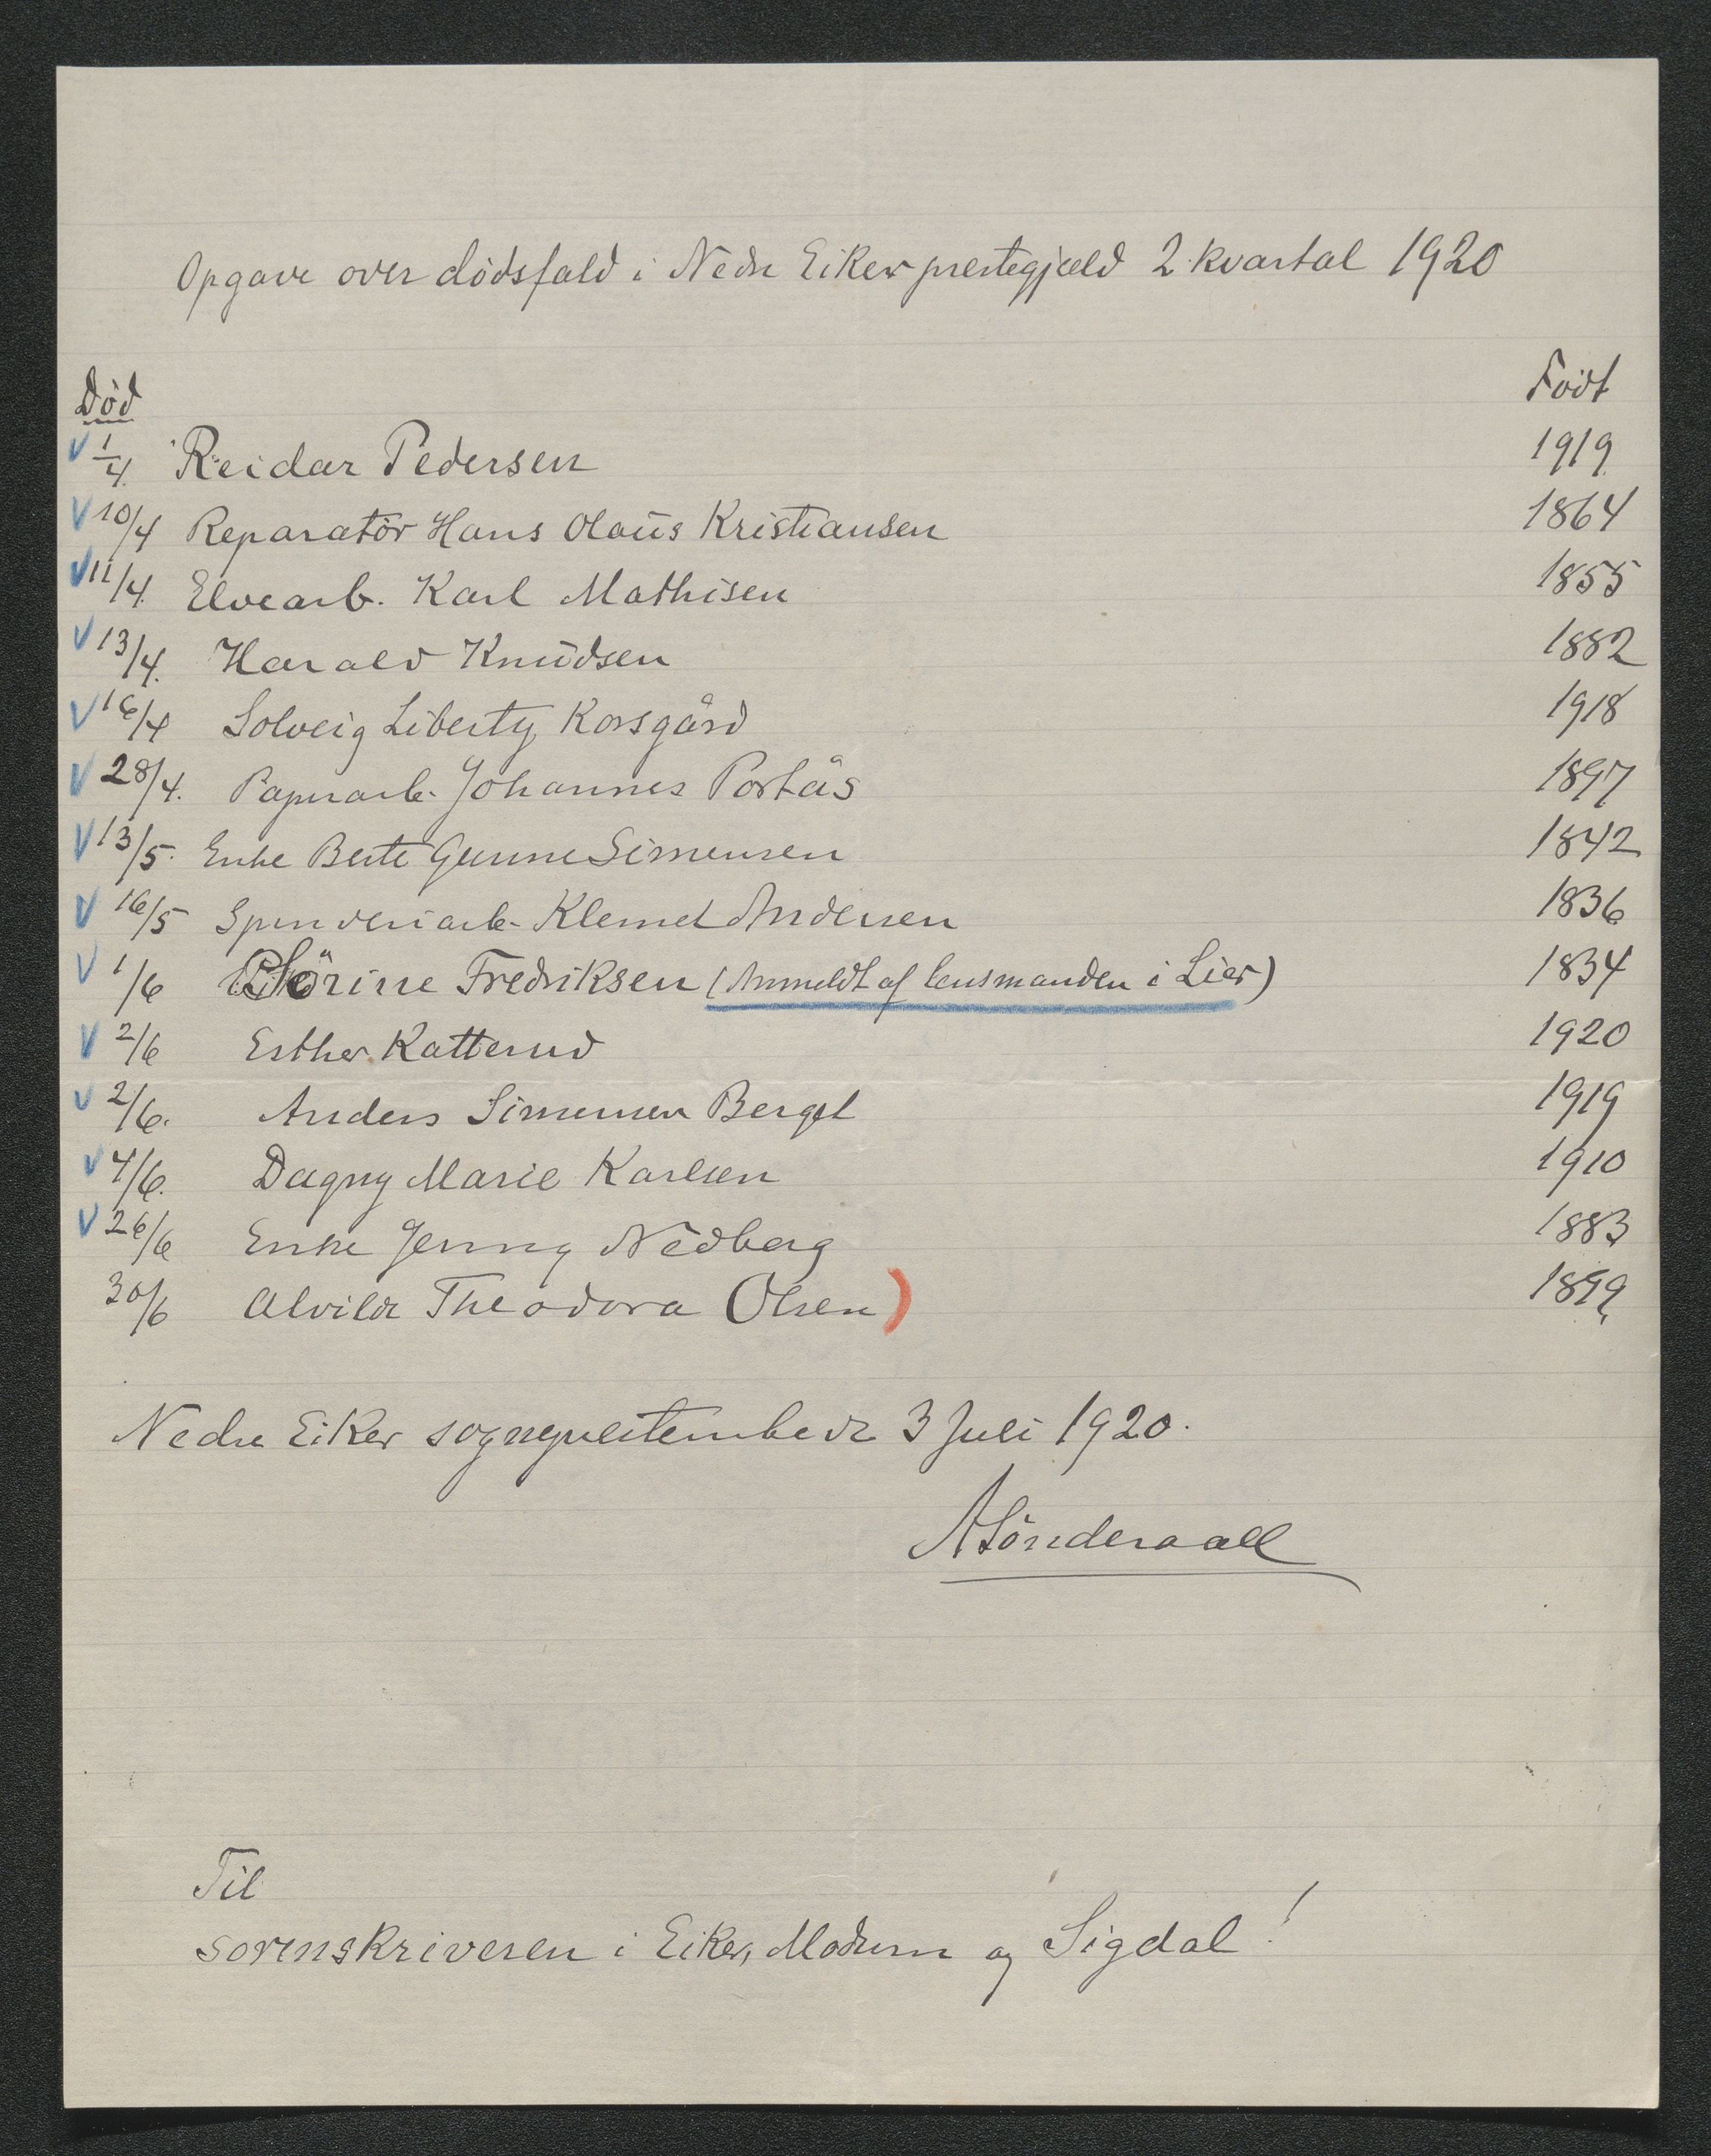 Opgave over dödsfald i Nedre Eiker prestegjæld 2 kvartal 1920
Död Födt
V 1/4. Reidar Pedersen 1919
V 10/4 Reparatör Hans Olaus Kristiansen 1864
V 11/4. Elvearb. Karl Mathisen 1855
V 13/4. Harald Knudsen 1882
V 16/4 Solveig Liberty Korsgård 1918
V 28/4. Papirarb. Johannes Portås 1897
V 13/5. Enke Berte Gurine Simensen 1842
V 16/5 Spinneriarb. Klemet Andersen 1836
V 1/6 Sörine Fredriksen (Anmeldt af lensmanden i Lier) 1834
V 2/6 Esther Katterud 1920
V 2/6. Anders Simensen Berget 1919
V 4/6. Dagny Marie Karlsen 1910
V 26/6 Enke Jenny Nedberg 1883
30/6 Alvilde Theodora Olsen) 1899
Nedre Eiker sogneprestembede 3 Juli 1920.
A Sönderaall
Til
sorenskriveren i Eiker, Modum og Sigdal!